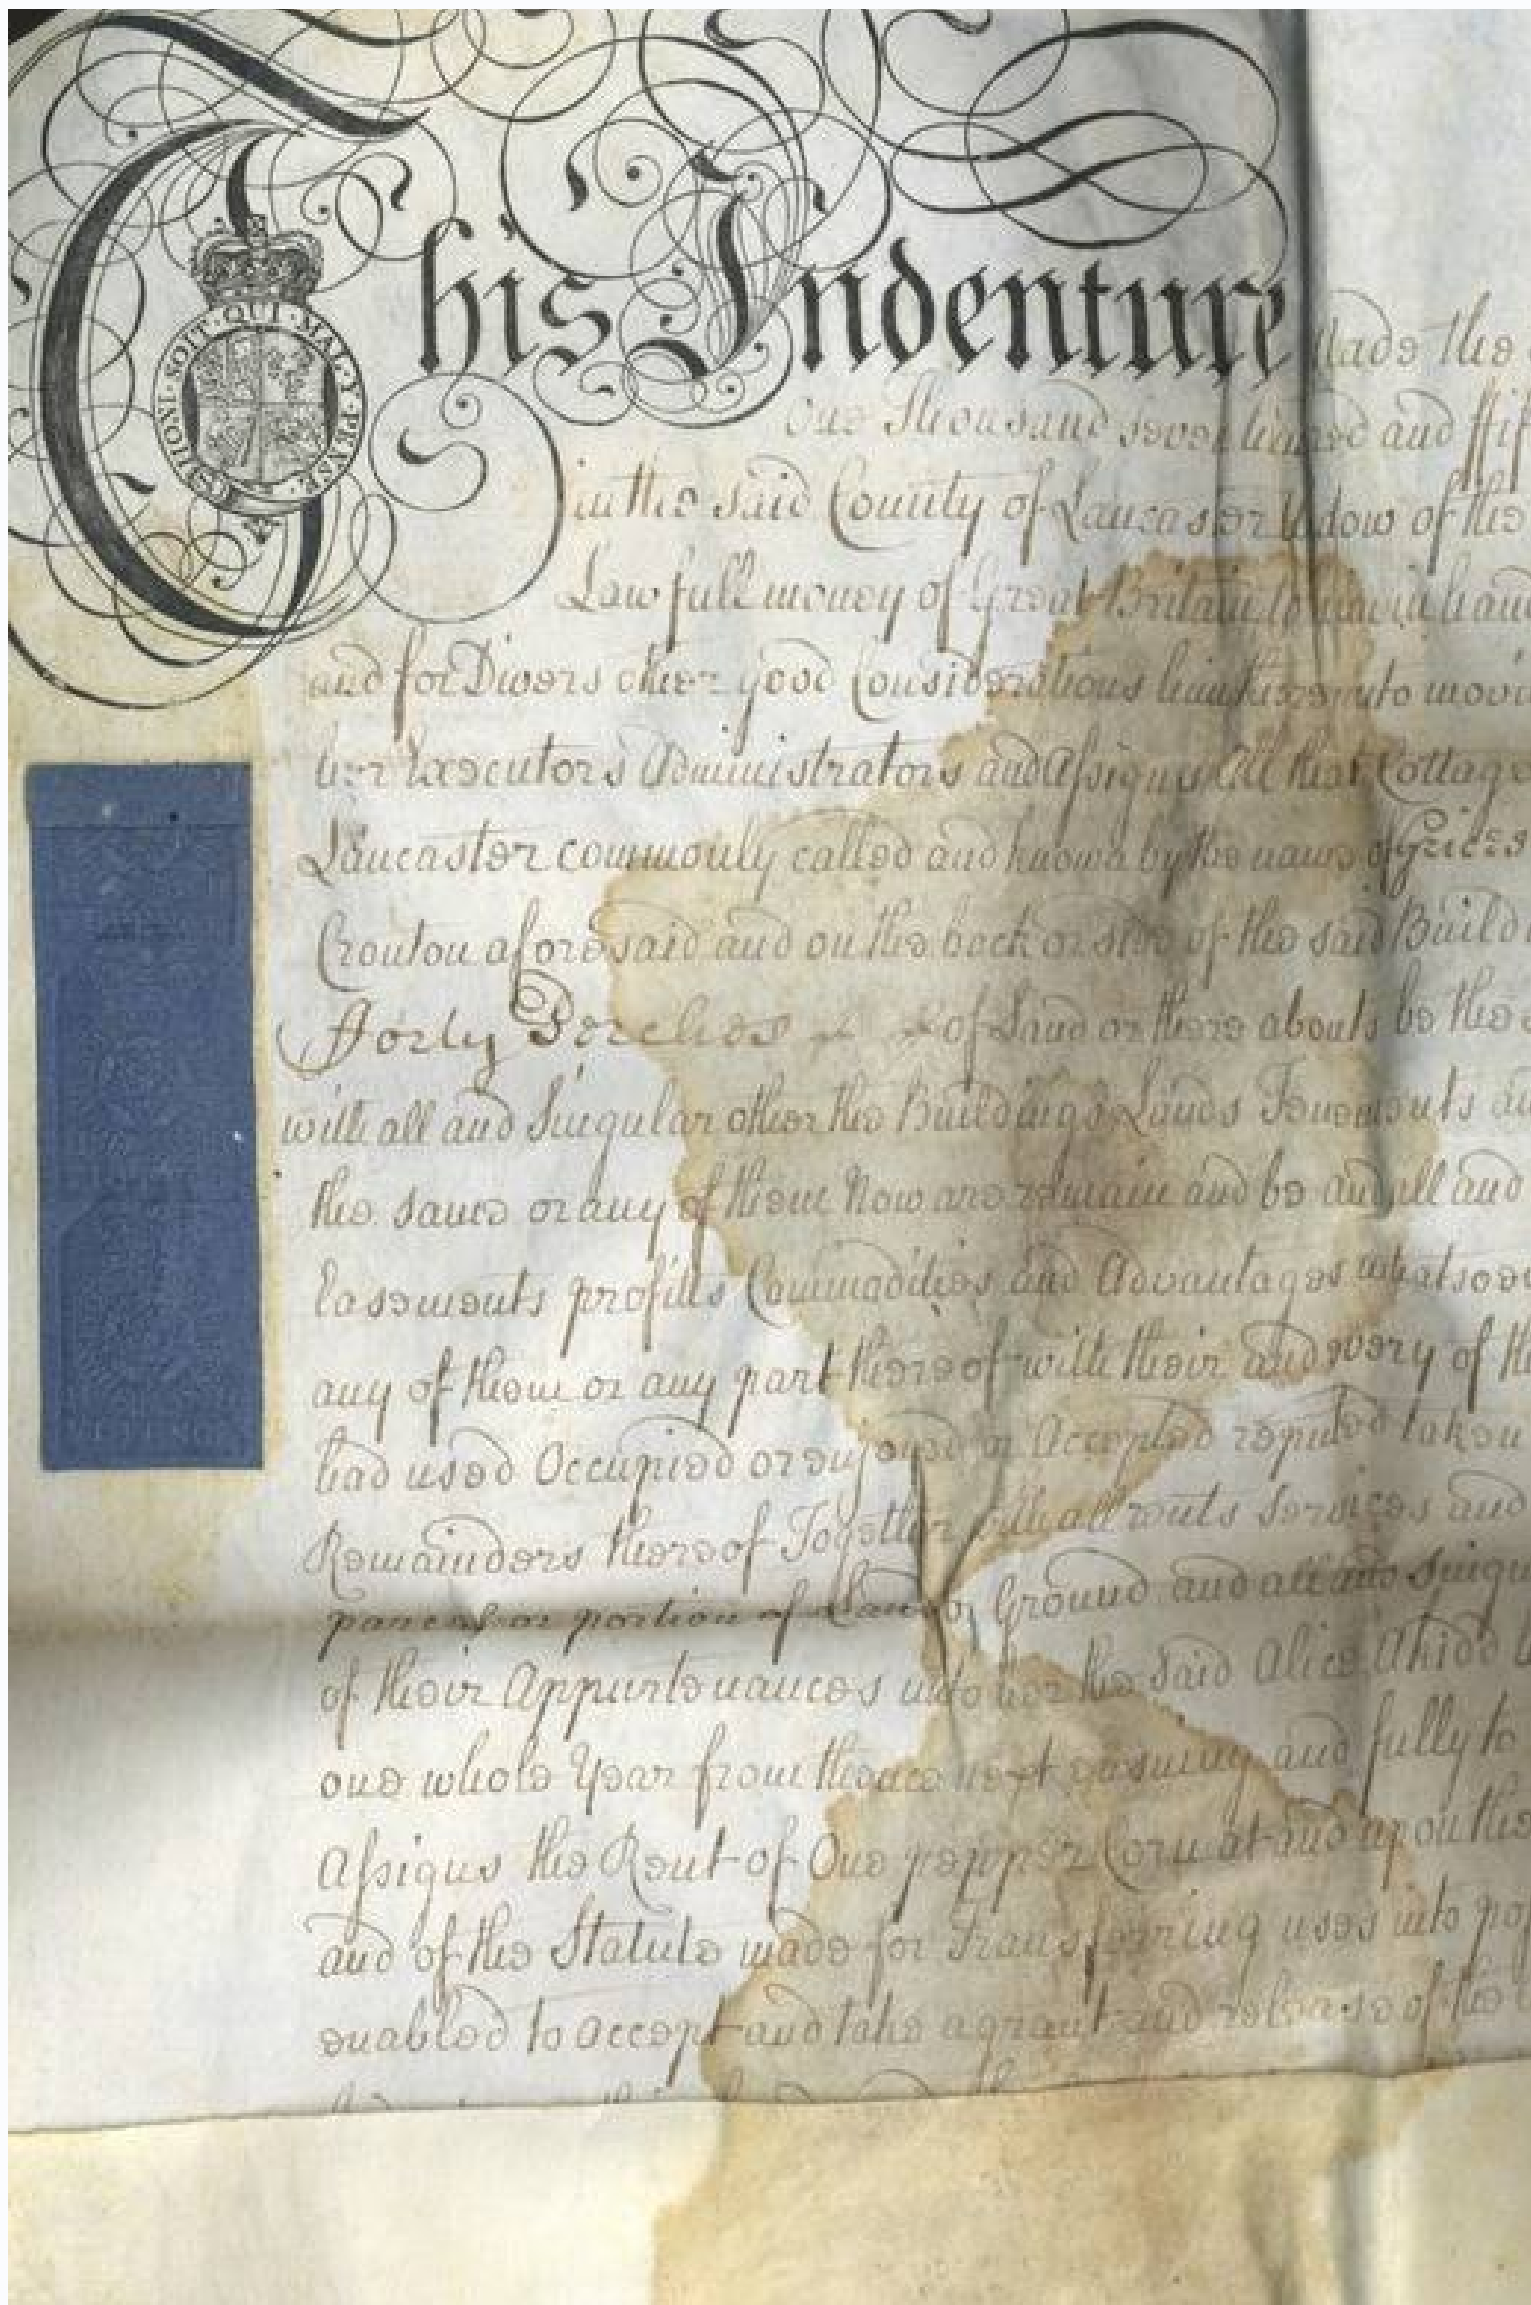 HONI · SOIT · QUI · MAL · Y · PENSE
This Indenture Made the
One Thousand seven hundred and ffif
in the said County of Lancaster Widow of the
Lawfull money of Great Britain to in hand
and for Divers other good Considerations hereunto movi
her Executors Administrators and Assigns All that Cottage
Lancaster commonly called and known by the name of Grices
Cronton aforesaid and on the back or side of the said Build
Forty Perches of Land or there abouts be the
with all and Singular other the Buildings Lands Tenements an
the same or any of them Now are remain and be and all and
Easements profitts Commodities and Advantages whatsoe
any of them or any part thereof with their and every of th
had used Occupied or enjoyed or Accepted reputed taken
Remainders thereof Together with all rents Services and
parcel or portion of Land or Ground and all and Singu
of their Appurtenances unto her the said Alice
one whole Year from thence next ensuing and fully to
Assigns the Rent of One pepper Corn at and upon the
and of the Statute made for Transferring uses into po
enabled to accept and take a grant and release of the